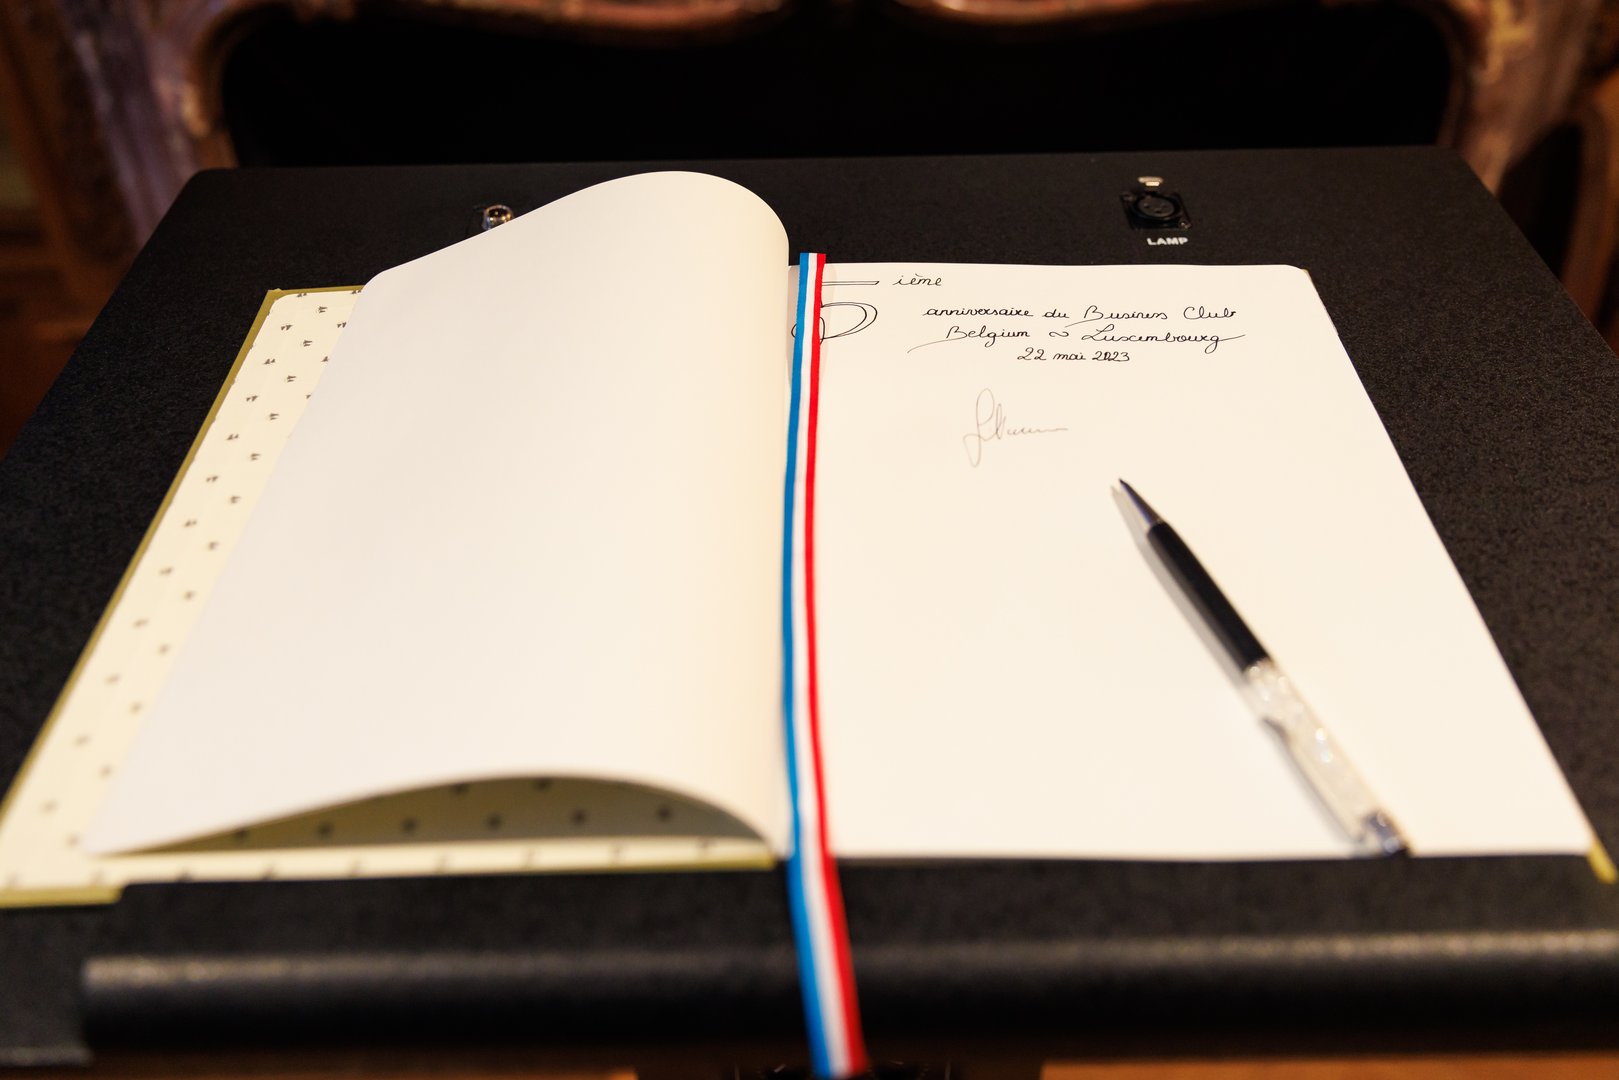 LAMP
5 ième
anniversaire du Business Club
Belgium ∞ Luxembourg
22 mai 2023